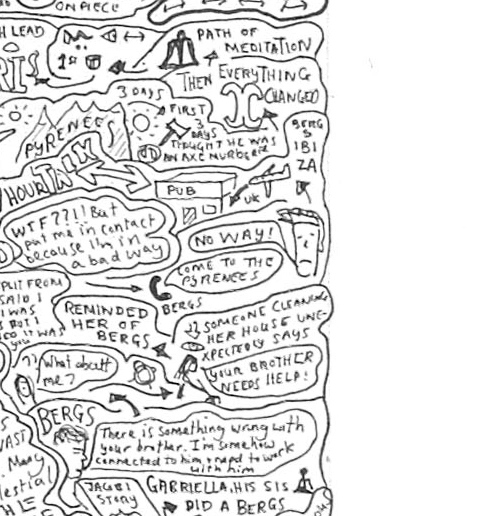 ON PIECE
H LEAD
PATH OF
MEDITATION
1st
RTS
THEN EVERYTHING
CHANGED
3 DAYS
FIRST
3
DAYS
THOUGHT HE WAS
AN AXE MURDERER
PYRENEES
BERG
S
IBI
ZA
HOUR TALK
PUB
UK
WTF??!! But
put me in contact
because I'm in
a bad way
NO WAY!
COME TO THE
PYRENEES
BERGS
PLIT FROM
SAID I
I WAS
REMINDED
HER OF
BERGS
SOMEONE CLEANING
HER HOUSE UNE-
XPECTEDLY SAYS
YOUR BROTHER
NEEDS HELP!
??
What about
me?
BERGS
There is something wrong with
your brother. I'm somehow
connected to him & need to work
with him
VAST
Many
lestial
JACOBI
STORY
GABRIELLA, HIS SIS
DID A BERGS